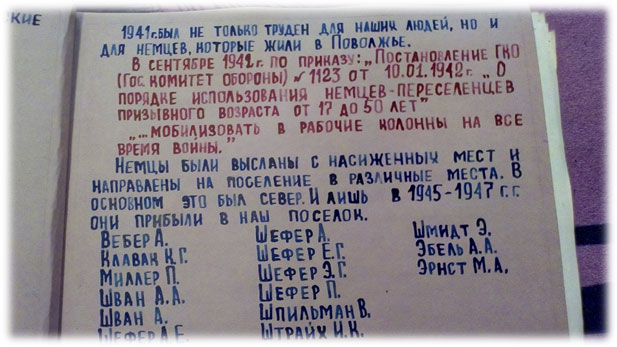 СКИЕ
1941г. БЫЛ НЕ ТОЛЬКО ТРУДЕН ДЛЯ НАШИХ ЛЮДЕЙ, НО И
ДЛЯ НЕМЦЕВ, КОТОРЫЕ ЖИЛИ В ПОВОЛЖЬЕ.
В СЕНТЯБРЕ 1942г. ПО ПРИКАЗУ: „ПОСТАНОВЛЕНИЕ ГКО
(ГОС. КОМИТЕТ ОБОРОНЫ) № 1123 ОТ 10.01.1942г. „О
ПОРЯДКЕ ИСПОЛЬЗОВАНИЯ НЕМЦЕВ-ПЕРЕСЕЛЕНЦЕВ
ПРИЗЫВНОГО ВОЗРАСТА ОТ 17 ДО 50 ЛЕТ”
„...МОБИЛИЗОВАТЬ В РАБОЧИЕ КОЛОННЫ НА ВСЕ
ВРЕМЯ ВОЙНЫ.”
НЕМЦЫ БЫЛИ ВЫСЛАНЫ С НАСИЖЕННЫХ МЕСТ И
НАПРАВЛЕНЫ НА ПОСЕЛЕНИЕ В РАЗЛИЧНЫЕ МЕСТА. В
ОСНОВНОМ ЭТО БЫЛ СЕВЕР. И ЛИШЬ В 1945-1947 г.г.
ОНИ ПРИБЫЛИ В НАШ ПОСЕЛОК.
ВЕБЕР А.
КЛАВАК К.Г.
МИЛЛЕР П.
ШВАН А.А.
ШВАН А.
ШЕФЕР А.Е.
ШЕФЕР А.
ШЕФЕР Е.Г.
ШЕФЕР Э.Г.
ШЕФЕР П.
ШПИЛЬМАН В.
ШТРАЙХ И.К.
ШМИДТ Э.
ЭБЕЛЬ А.А.
ЭРНСТ М.А.